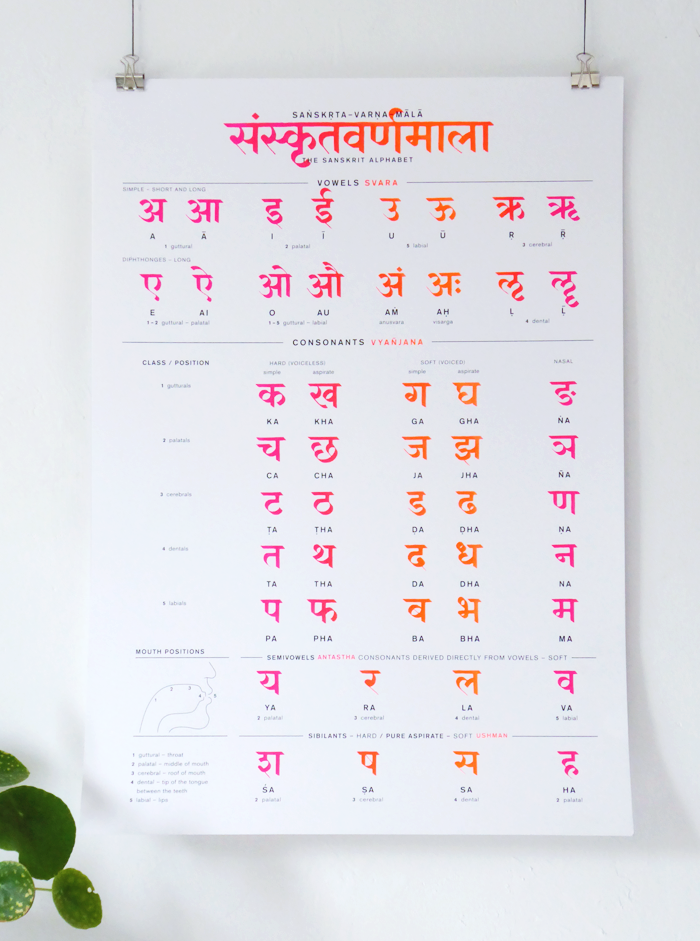 SAṄSKṚTA–VARNA–MĀLĀ
संस्कृतवर्णमाला
THE SANSKRIT ALPHABET
VOWELS SVARA
SIMPLE – SHORT AND LONG
अ आ इ ई उ ऊ ऋ ॠ
A Ā I Ī U Ū Ṛ Ṝ
1 guttural 2 palatal 5 labial 3 cerebral
DIPHTHONGES – LONG
ए ऐ ओ औ अं अः ऌ ॡ
E AI O AU AṀ AḤ Ḷ Ḹ
1–2 guttural – palatal 1–5 guttural – labial anusvara visarga 4 dental
CONSONANTS VYAÑJANA
CLASS / POSITION HARD (VOICELESS) SOFT (VOICED) NASAL
simple aspirate simple aspirate
1 gutturals क ख ग घ ङ
KA KHA GA GHA ṄA
2 palatals च छ ज झ ञ
CA CHA JA JHA ÑA
3 cerebrals ट ठ ड ढ ण
ṬA ṬHA ḌA ḌHA ṆA
4 dentals त थ ढ ध न
TA THA DA DHA NA
5 labials प फ व भ म
PA PHA BA BHA MA
MOUTH POSITIONS
1 2 3 4 5
SEMIVOWELS ANTASTHA CONSONANTS DERIVED DIRECTLY FROM VOWELS – SOFT
य र ल व
YA RA LA VA
2 palatal 3 cerebral 4 dental 5 labial
SIBILANTS – HARD / PURE ASPIRATE – SOFT USHMAN
श प स ह
ŚA ṢA SA HA
2 palatal 3 cerebral 4 dental 2 palatal
1 guttural – throat
2 palatal – middle of mouth
3 cerebral – roof of mouth
4 dental – tip of the tongue
between the teeth
5 labial – lips